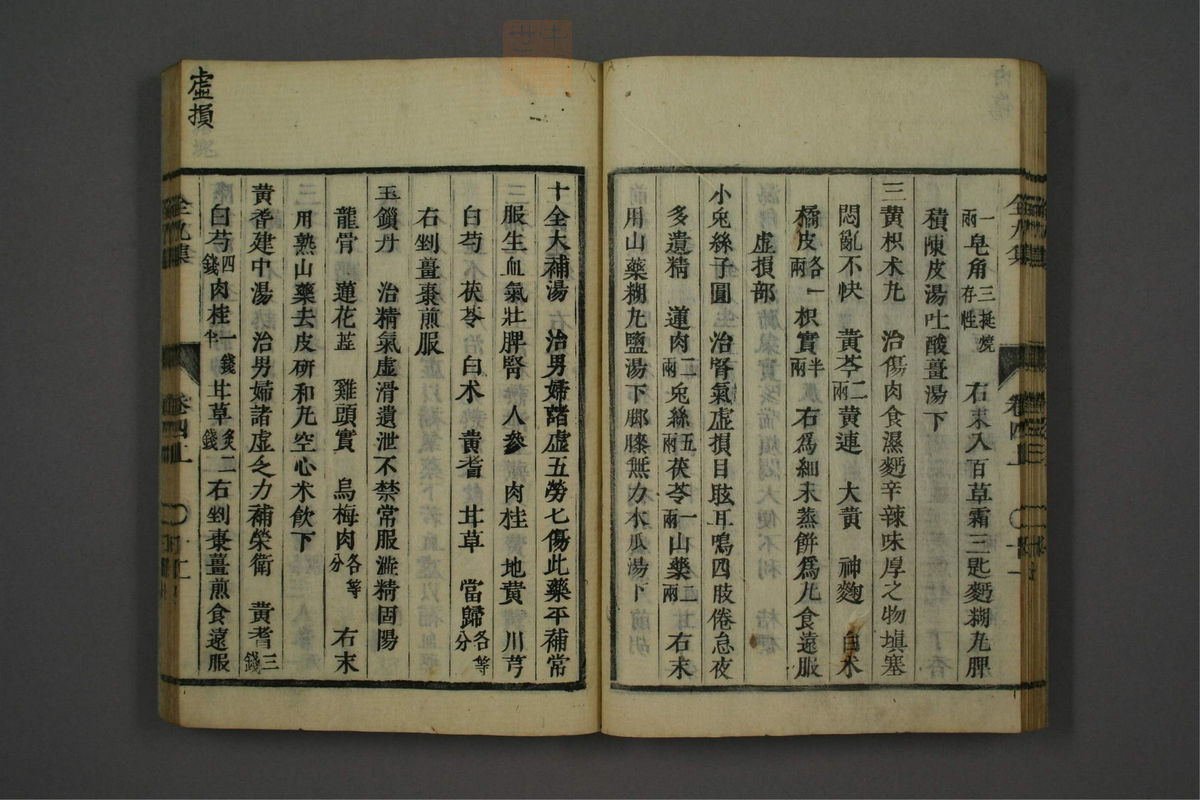 一兩皂角三挺燒存性 右末入百草霜三匙麪糊丸脾
積陳皮湯吐酸薑湯下
三黃枳朮丸 治傷肉食濕麪辛辣味厚之物填塞
悶亂不快 黃芩二兩黃連 大黃 神麴 白朮
橘皮各一兩枳實半兩 右爲細末蒸餅爲丸食遠服
虛損部
小兔絲子圓 治腎氣虛損目眩耳鳴四肢倦怠夜
多遺精 蓮肉二兩兔絲五兩茯苓一兩山藥二兩右末
用山藥糊丸鹽湯下脚膝無力木瓜湯下
虛損
十全大補湯 治男婦諸虛五勞七傷此藥平補常
服生血氣壯脾腎 人參 肉桂 地黃 川芎
白芍 茯苓 白朮 黃耆 甘草 當歸各等分
右剉薑棗煎服
玉鎖丹 治精氣虛滑遺泄不禁常服澁精固陽
龍骨 蓮花蘂 雞頭實 烏梅肉各等分 右末
用熟山藥去皮研和丸空心米飲下
黃耆建中湯 治男婦諸虛之力補榮衛 黃耆三錢
白芍四錢肉桂一錢半甘草炙二錢右剉棗薑煎食遠服
卷四上